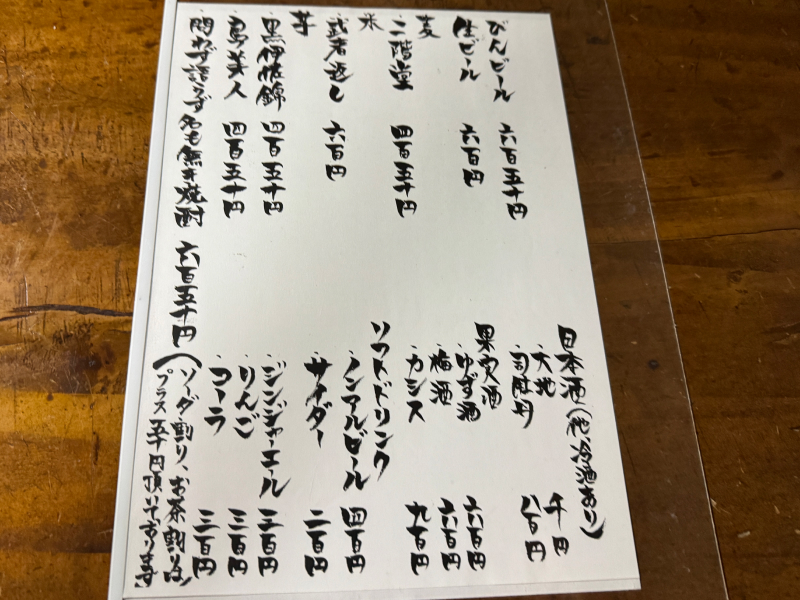 びんビール 六百五十円
生ビール 六百円
麦
・二階堂 四百五十円
米
・武者返し 六百円
芋
・黒伊佐錦 四百五十円
・島美人 四百五十円
・問わず語らず名も無き焼酎 六百五十円
日本酒(他、冷酒あり)
・大地 千円
・司牡丹 八百円
果実酒
・ゆず酒 六百円
・梅酒 六百円
・カシス 九百円
ソフトドリンク
・ノンアルビール 四百円
・サイダー 二百円
・ジンジャーエール 三百円
・りんご 三百円
・コーラ 三百円
(ソーダ割り、お茶割りは、
プラス五十円頂いております)